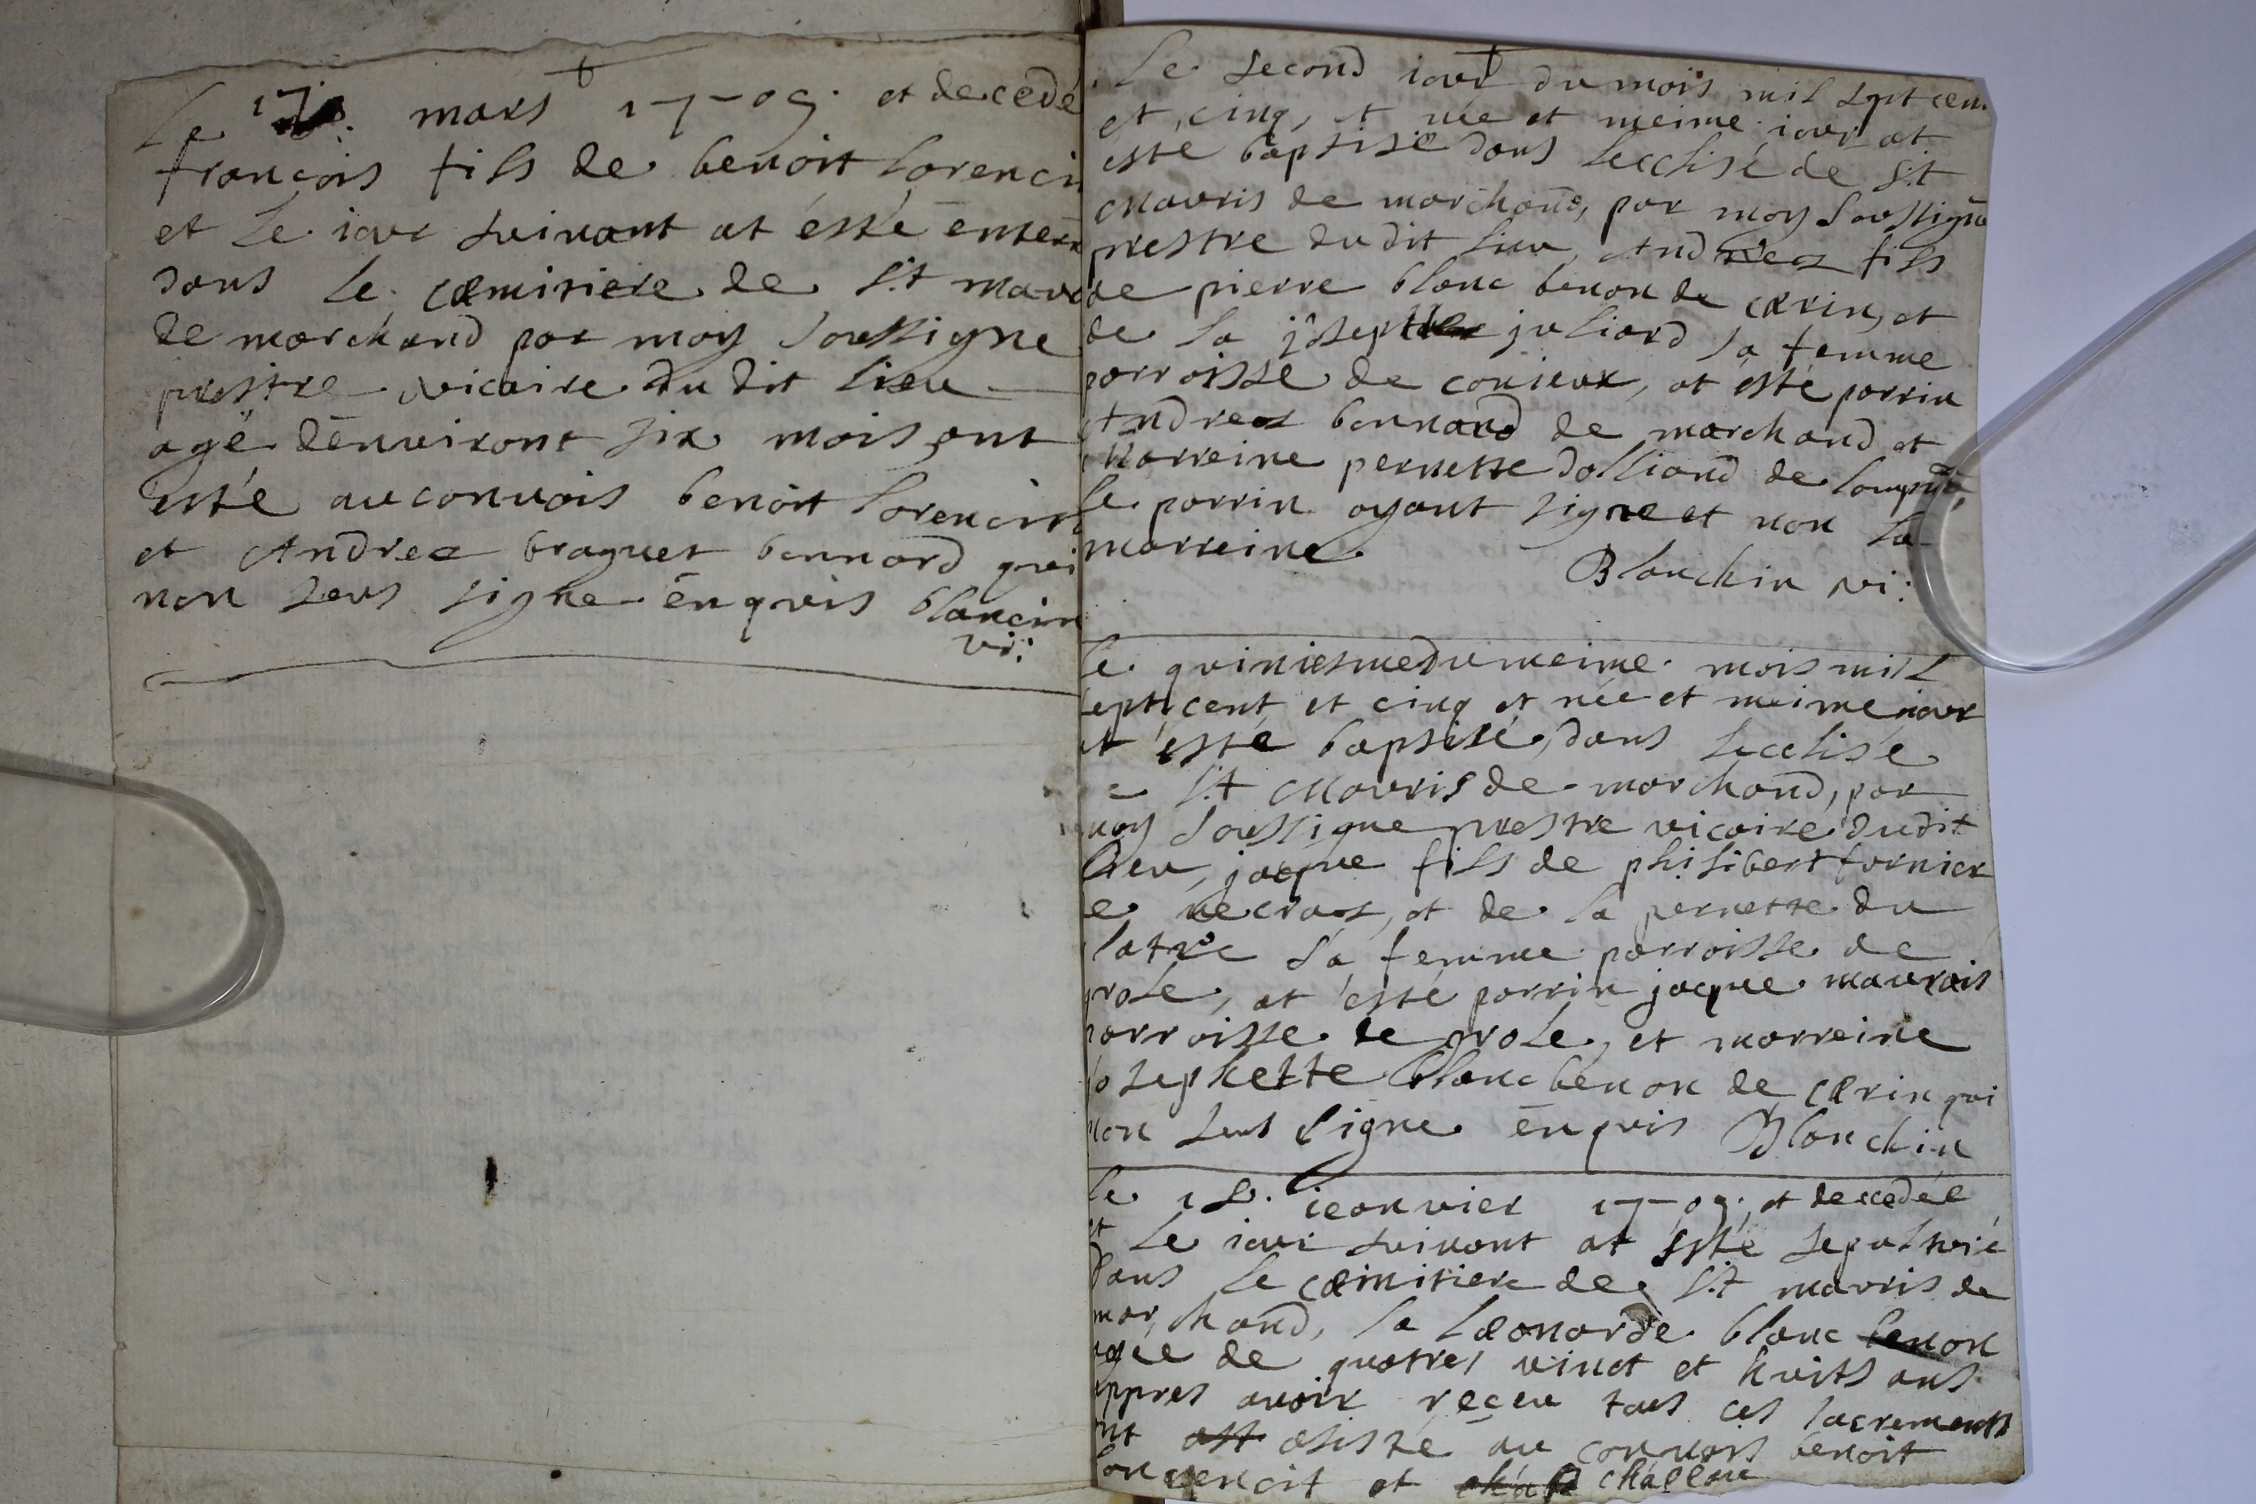 Le 17 mars 1705 et decedé
françois fils de benoit lorencin
et le iour suivant at ésté enterr
dans le cœmitiere de S.t maur
de marchand par moy soussigne
prestre vicaire du dit lieu
agé d'environt six mois, ont
esté au convois benoit lorencin
et Andrea braguet bonnard qui
non seus signe enquis blancin
vi:
Le second iour du mois mil sept cent
et cinq, et née et meime iour at
esté baptisé dans lecclisé de S.t
Mauris de marchand, par moy soussigne
prestre dudit lieu, Andrea fils
de pierre blanc benon de cœrin, et
de la joseph juliard sa femme
parroisse de conieux, at ésté parrin
Andrea bonnard de marchand et
Marreine pernette dolliand de
le parrin ayant signe et non la
marreine.
Blanchin vi:
le quiniesme du meime mois mil
sept cent et cinq et née et meime iour
et ésté baptisé, dans lecclisé
S.t Mauris de marchand, par
moy soussigne prestre vicaire dudit
lieu, jacque fils de philibert fornier
de et de la pernette du
sa femme parroisse de
prole, at ésté parrin jacque mauvais
parroisse de prole, et marreine
josephette blanc benon de cœrin qui
non seus signe enquis Blanchin
le 15. ieanvier 1705, et decedée
et le iour suivant at ésté sepulturé
dans le cœmitiere de S.t mauris de
marchand, la Leonarde blanc benon
agée de quatres vinct et huits ans
appres avoir reçeu tous ces sacrements
ont asisté au convois benoit
lorrencit et